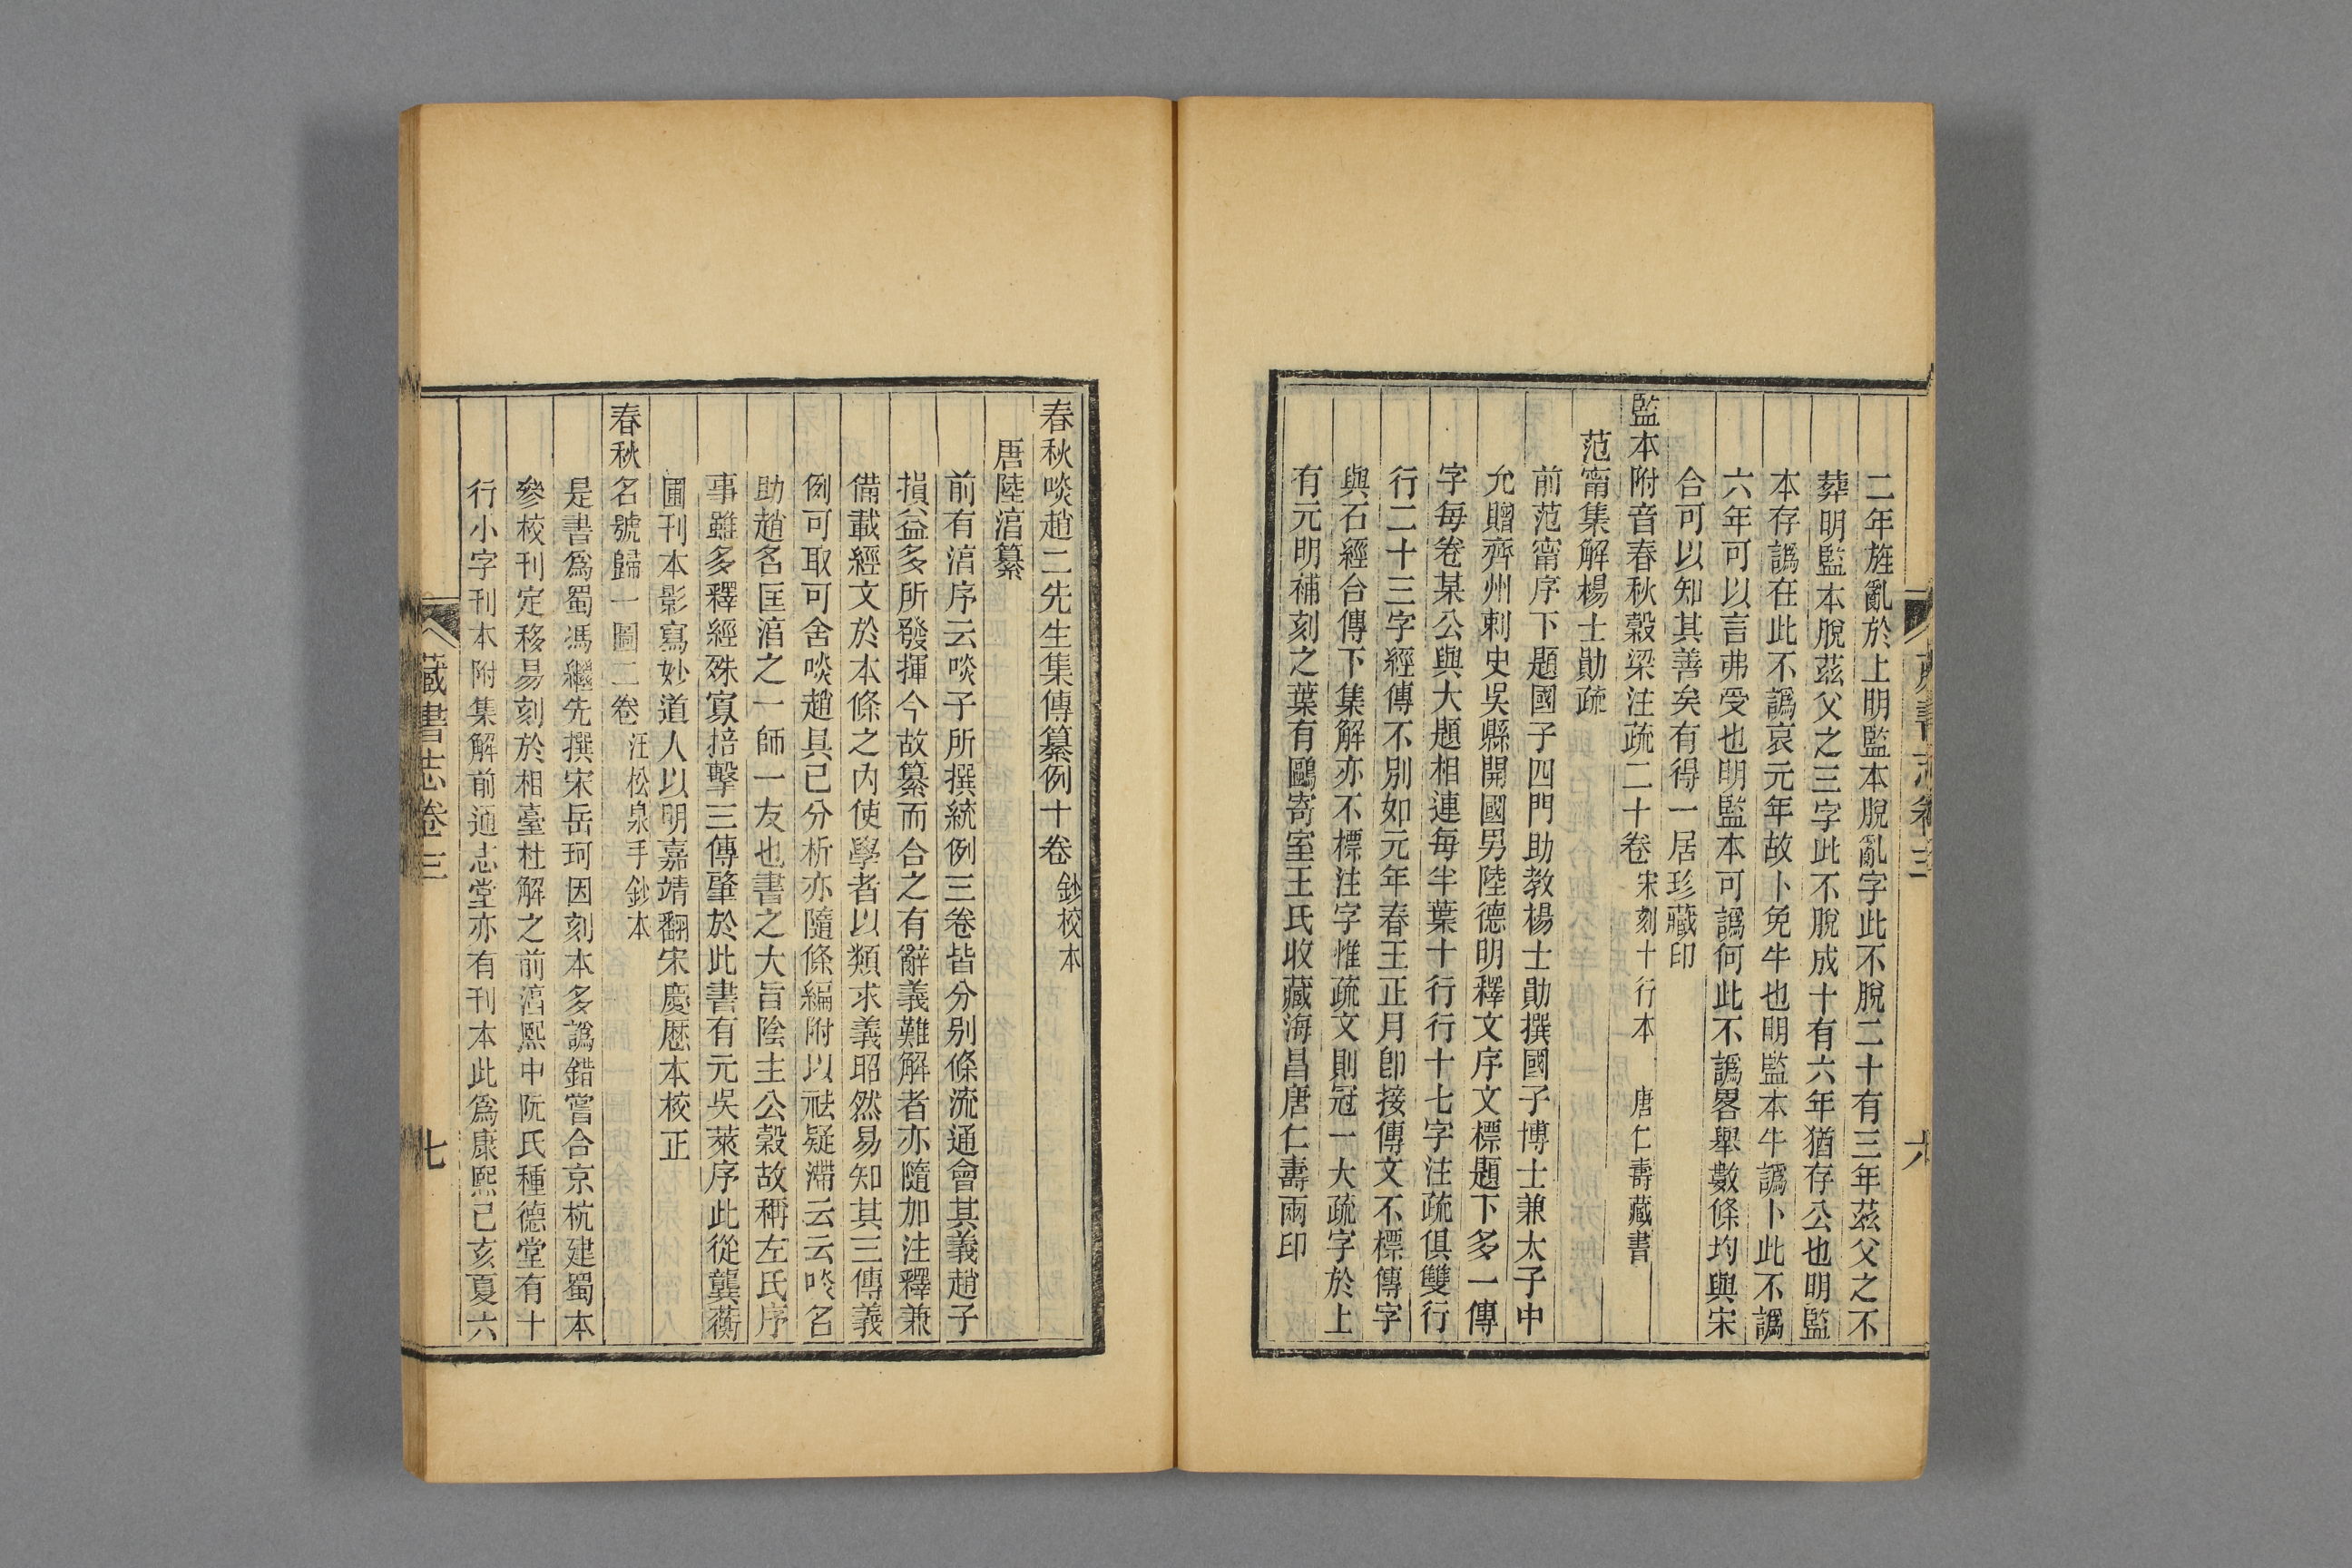 二年旌亂於上明監本脫亂字此不脫二十有三年茲父之不
葬明監本脫茲父之三字此不脫成十有六年猶存公也明監
本存譌在此不譌哀元年故卜免牛也明監本牛譌卜此不譌
六年可以言弗受也明監本可譌何此不譌畧舉數條均與宋
合可以知其善矣有得一居珍藏印
監本附音春秋穀梁注疏二十卷 宋刻十行本 唐仁壽藏書
范甯集解楊士勛疏
前范甯序下題國子四門助教楊士勛撰國子博士兼太子中
允贈齊州刺史吳縣開國男陸德明釋文序文標題下多一傳
字每卷某公與大題相連每半葉十行行十七字注疏俱雙行
行二十三字經傳不別如元年春王正月卽接傳文不標傳字
與石經台傳下集解亦不標注字惟疏文則冠一大疏字於上
有元明補刻之葉有鷗寄室王氏收藏海昌唐仁壽兩印
藏書志卷三
六
春秋啖趙二先生集傳纂例十卷 鈔校本
唐陸淳纂
前有淳序云啖子所撰統例三卷皆分別條流通會其義趙子
損益多所發揮今故纂而合之有辭義難解者亦隨加注釋兼
備載經文於本條之內使學者以類求義昭然易知其三傳義
例可取可舍啖趙具已分析亦隨條編附以祛疑滯云云啖名
助趙名匡淳之一師一友也書之大旨陰主公穀故稱左氏序
事雖多釋經殊寡掊擊三傳肇於此書有元吳萊序此從龔蘅
圃刊本影寫妙道人以明嘉靖翻宋慶厯本校正
春秋名號歸一圖二卷 汪松泉手鈔本
是書爲蜀馮繼先撰宋岳珂因刻本多譌錯嘗合京杭建蜀本
參校刊定移易刻於相臺杜解之前淳熙中阮氏種德堂有十
行小字刊本附集解前通志堂亦有刊本此爲康熙己亥夏六
藏書志卷三
七